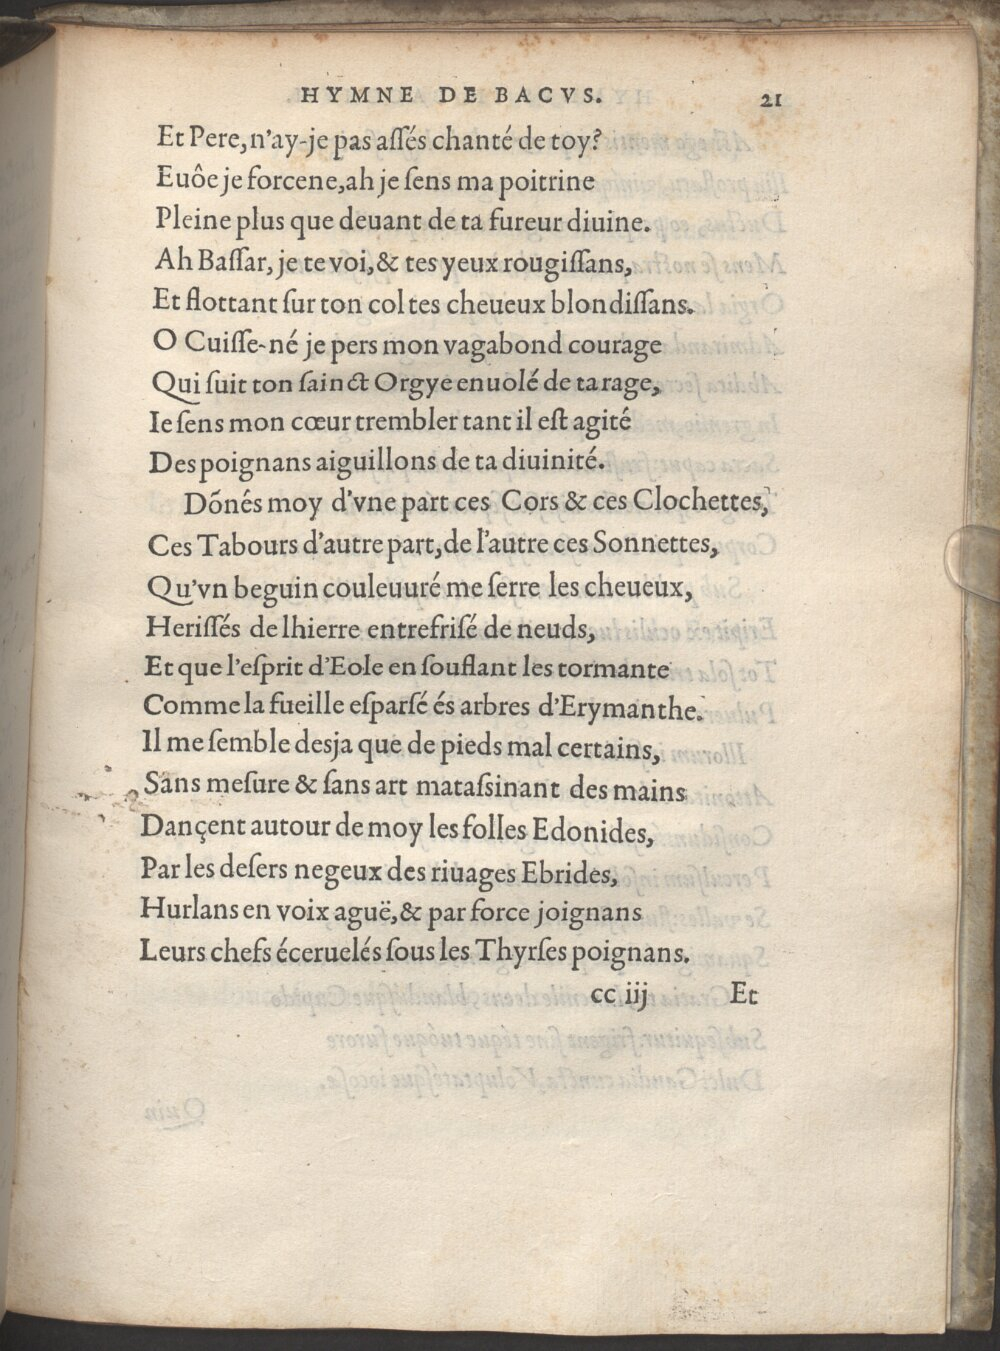 HYMNE DE BACVS. 21
Et Pere, n'ay-je pas aſſés chanté de toy?
Euôe je forcene, ah je ſens ma poitrine
Pleine plus que deuant de ta fureur diuine.
Ah Baſſar, je te voi, & tes yeux rougiſſans,
Et flottant ſur ton col tes cheueux blondiſſans.
O Cuiſſe-né je pers mon vagabond courage
Qui ſuit ton ſainct Orgye enuolé de ta rage,
Ie ſens mon cœur trembler tant il eſt agité
Des poignans aiguillons de ta diuinité.
Dõnés moy d'vne part ces Cors & ces Clochettes,
Ces Tabours d'autre part, de l'autre ces Sonnettes,
Qu'vn beguin couleuuré me ſerre les cheueux,
Heriſſés de lhierre entrefriſé de neuds,
Et que l'eſprit d'Eole en ſouflant les tormante
Comme la fueille eſparſé és arbres d'Erymanthe.
Il me ſemble desja que de pieds mal certains,
Sans meſure & ſans art mataſsinant des mains
Dançent autour de moy les folles Edonides,
Par les deſers negeux des riuages Ebrides,
Hurlans en voix aguë, & par force joignans
Leurs chefs éceruelés ſous les Thyrſes poignans.
cc iij Et